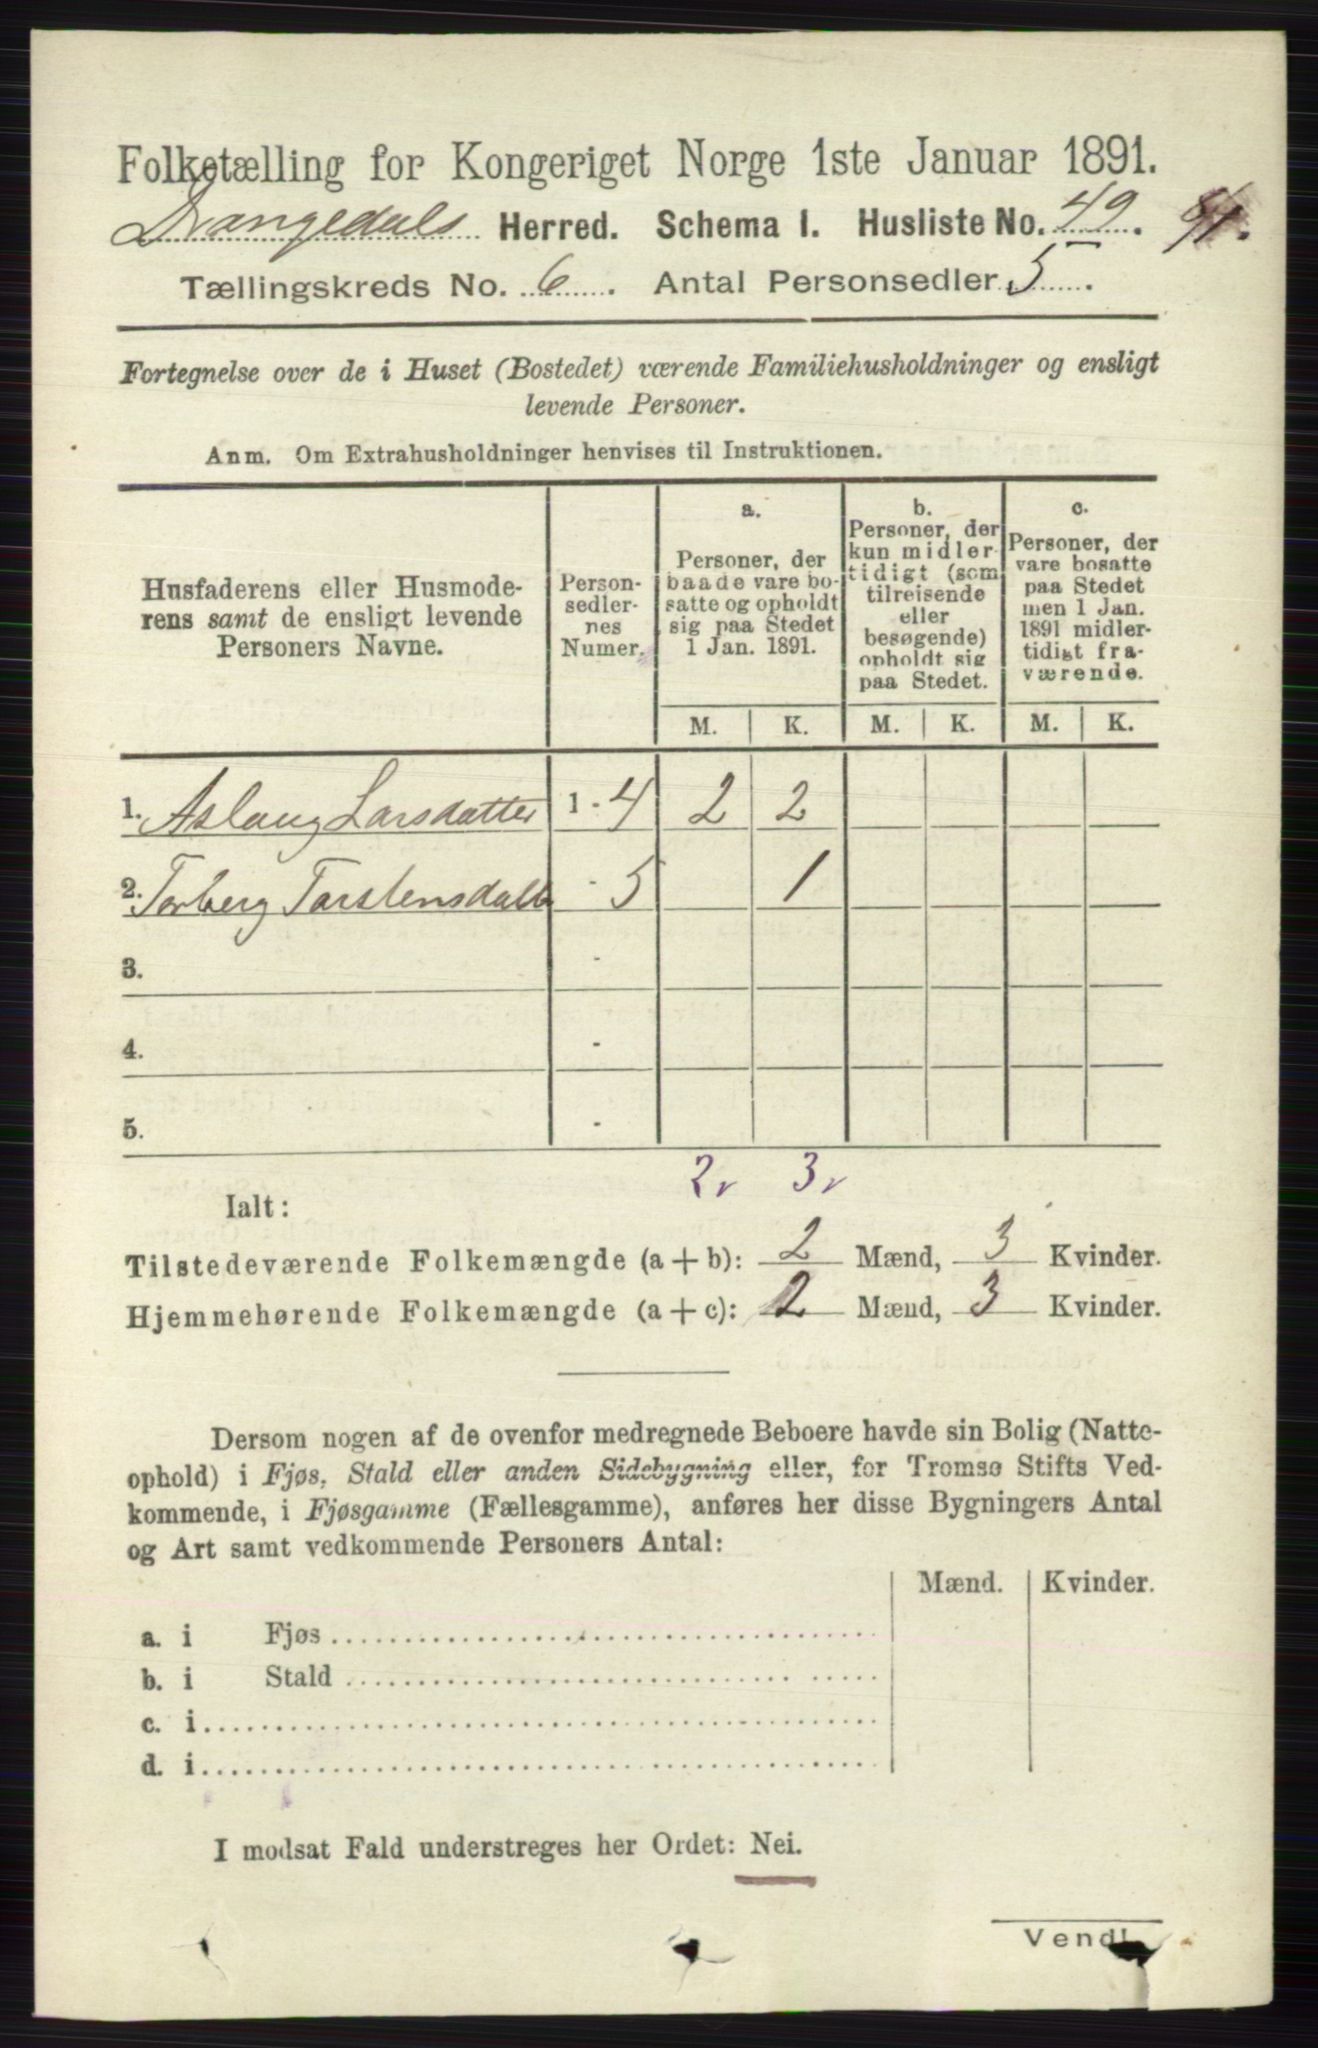 Folketælling for Kongeriget Norge 1ste Januar 1891.
Drangedals Herred. Schema I. Husliste No. 49.
Tællingskreds No. 6. Antal Personsedler 5.
Fortegnelse over de i Huset (Bostedet) værende Familiehusholdninger og ensligt
levende Personer.
Anm. Om Extrahusholdninger henvises til Instruktionen.
Husfaderens eller Husmode-
rens samt de ensligt levende
Personers Navne.
Person-
sedler-
nes
Numer.
a.
Personer, der
baade vare bo-
satte og opholdt
sig paa Stedet
1 Jan. 1891.
b.
Personer, der
kun midler-
tidigt (som
tilreisende
eller
besøgende)
opholdt sig
paa Stedet.
c.
Personer, der
vare bosatte
paa Stedet
men 1 Jan.
1891 midler-
tidigt fra-
værende.
M. K. M. K. M. K.
1. Aslaug Larsdatter 1 - 4 2 2
2. Torberg Torstensdatt - 5 1
3. -
4. -
5. -
2 v 3 v
Ialt:
Tilstedeværende Folkemængde (a + b): 2 Mænd, 3 Kvinder.
Hjemmehørende Folkemængde (a + c): 2 Mænd, 3 Kvinder.
Dersom nogen af de ovenfor medregnede Beboere havde sin Bolig (Natte-
ophold) i Fjøs, Stald eller anden Sidebygning eller, for Tromsø Stifts Ved-
kommende, i Fjøsgamme (Fællesgamme), anføres her disse Bygningers Antal
og Art samt vedkommende Personers Antal:
Mænd. Kvinder.
a. i Fjøs
b. i Stald
c. i
d. i
I modsat Fald understreges her Ordet: Nei.
Vend!